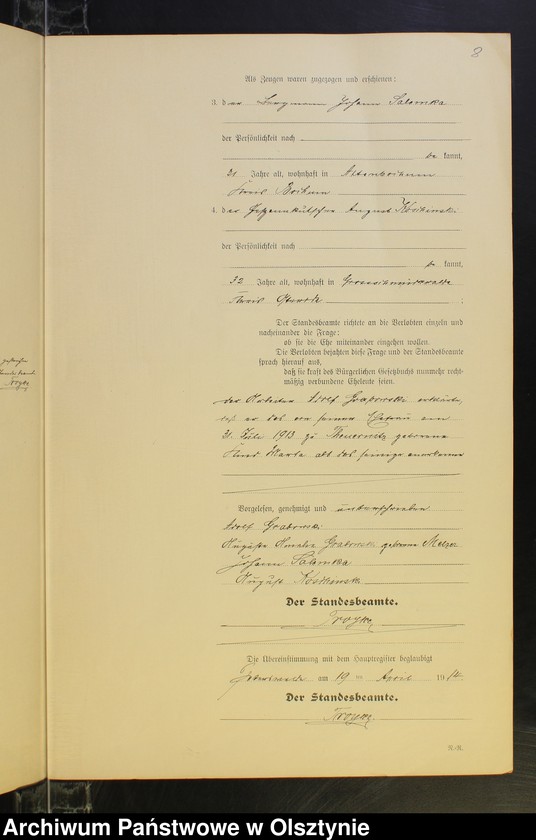 8
Als Zeugen waren zugezogen und erschienen:
3. der Bergmann Johann Salewska
der Persönlichkeit nach
be kannt,
31 Jahre alt, wohnhaft in Altenbochum
Kreis Bochum
4. der August
der Persönlichkeit nach
be kannt,
32 Jahre alt, wohnhaft in
Kreis Osterode ;
Der Standesbeamte richtete an die Verlobten einzeln und
nacheinander die Frage:
ob sie die Ehe miteinander eingehen wollen.
Die Verlobten bejahten diese Frage und der Standesbeamte
sprach hierauf aus,
daß sie kraft des Bürgerlichen Gesetzbuchs nunmehr recht-
mäßig verbundene Eheleute seien.
der Arbeiter Adolf Grabowski erklärte,
daß er das von seiner Ehefrau am
31. Juli 1913 zu Theuernitz geborene
Kind Marta als das seinige anerkenne
Vorgelesen, genehmigt und unterschrieben
Adolf Grabowski
Auguste Amalie Grabowski geborene
Johann Salewska
August
Der Standesbeamte.
Troyke
Die Übereinstimmung mit dem Hauptregister beglaubigt
am 19 ten April 1914.
Der Standesbeamte.
Troyke
R.-R.
Archiwum Państwowe w Olsztynie